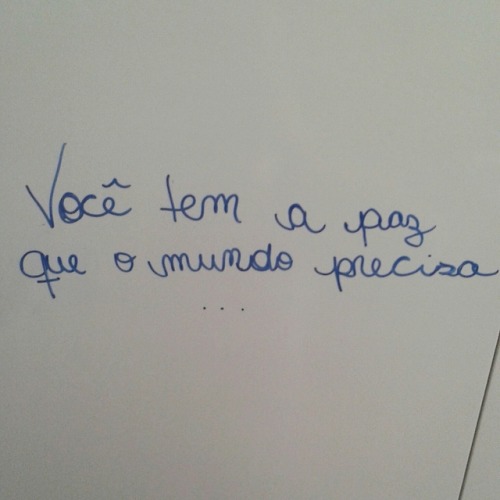 Você tem a paz
que o mundo precisa
...